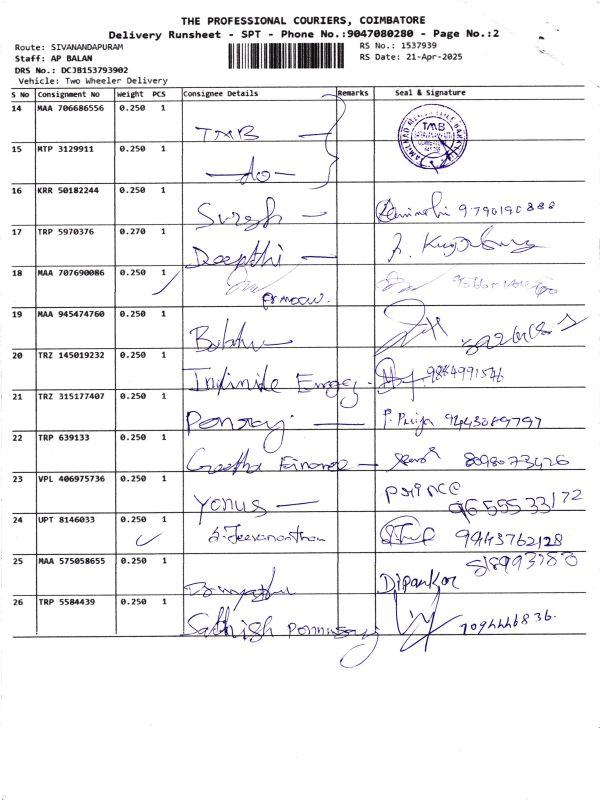 THE PROFESSIONAL COURIERS, COIMBATORE
Delivery Runsheet - SPT - Phone No.:9047080280 - Page No.:2
Route: SIVANANDAPURAM
RS No.: 1537939
Staff: AP BALAN
RS Date: 21-Apr-2025
DRS No.: DCJB153793902
Vehicle: Two Wheeler Delivery
S No Consignment No Weight PCS Consignee Details Remarks Seal & Signature
14 MAA 706686556 0.250 1 TMB
TMB
15 MTP 3129911 0.250 1 do
16 KRR 50182244 0.250 1 Suresh
17 TRP 5970376 0.270 1 Deepthi
18 MAA 707690086 0.250 1
19 MAA 945474760 0.250 1
20 TRZ 145019232 0.250 1 9884991546
21 TRZ 315177407 0.250 1 Ponraj P. Priya 9443089797
22 TRP 639133 0.250 1 Geetha Finance 8098073426
23 VPL 406975736 0.250 1 Yonus Prince 96 555 33172
24 UPT 8146033 0.250 1 S. Jeevananthan 9943762128
25 MAA 575058655 0.250 1 Dipankar
26 TRP 5584439 0.250 1 Sathish Ponnusamy 7094446836.